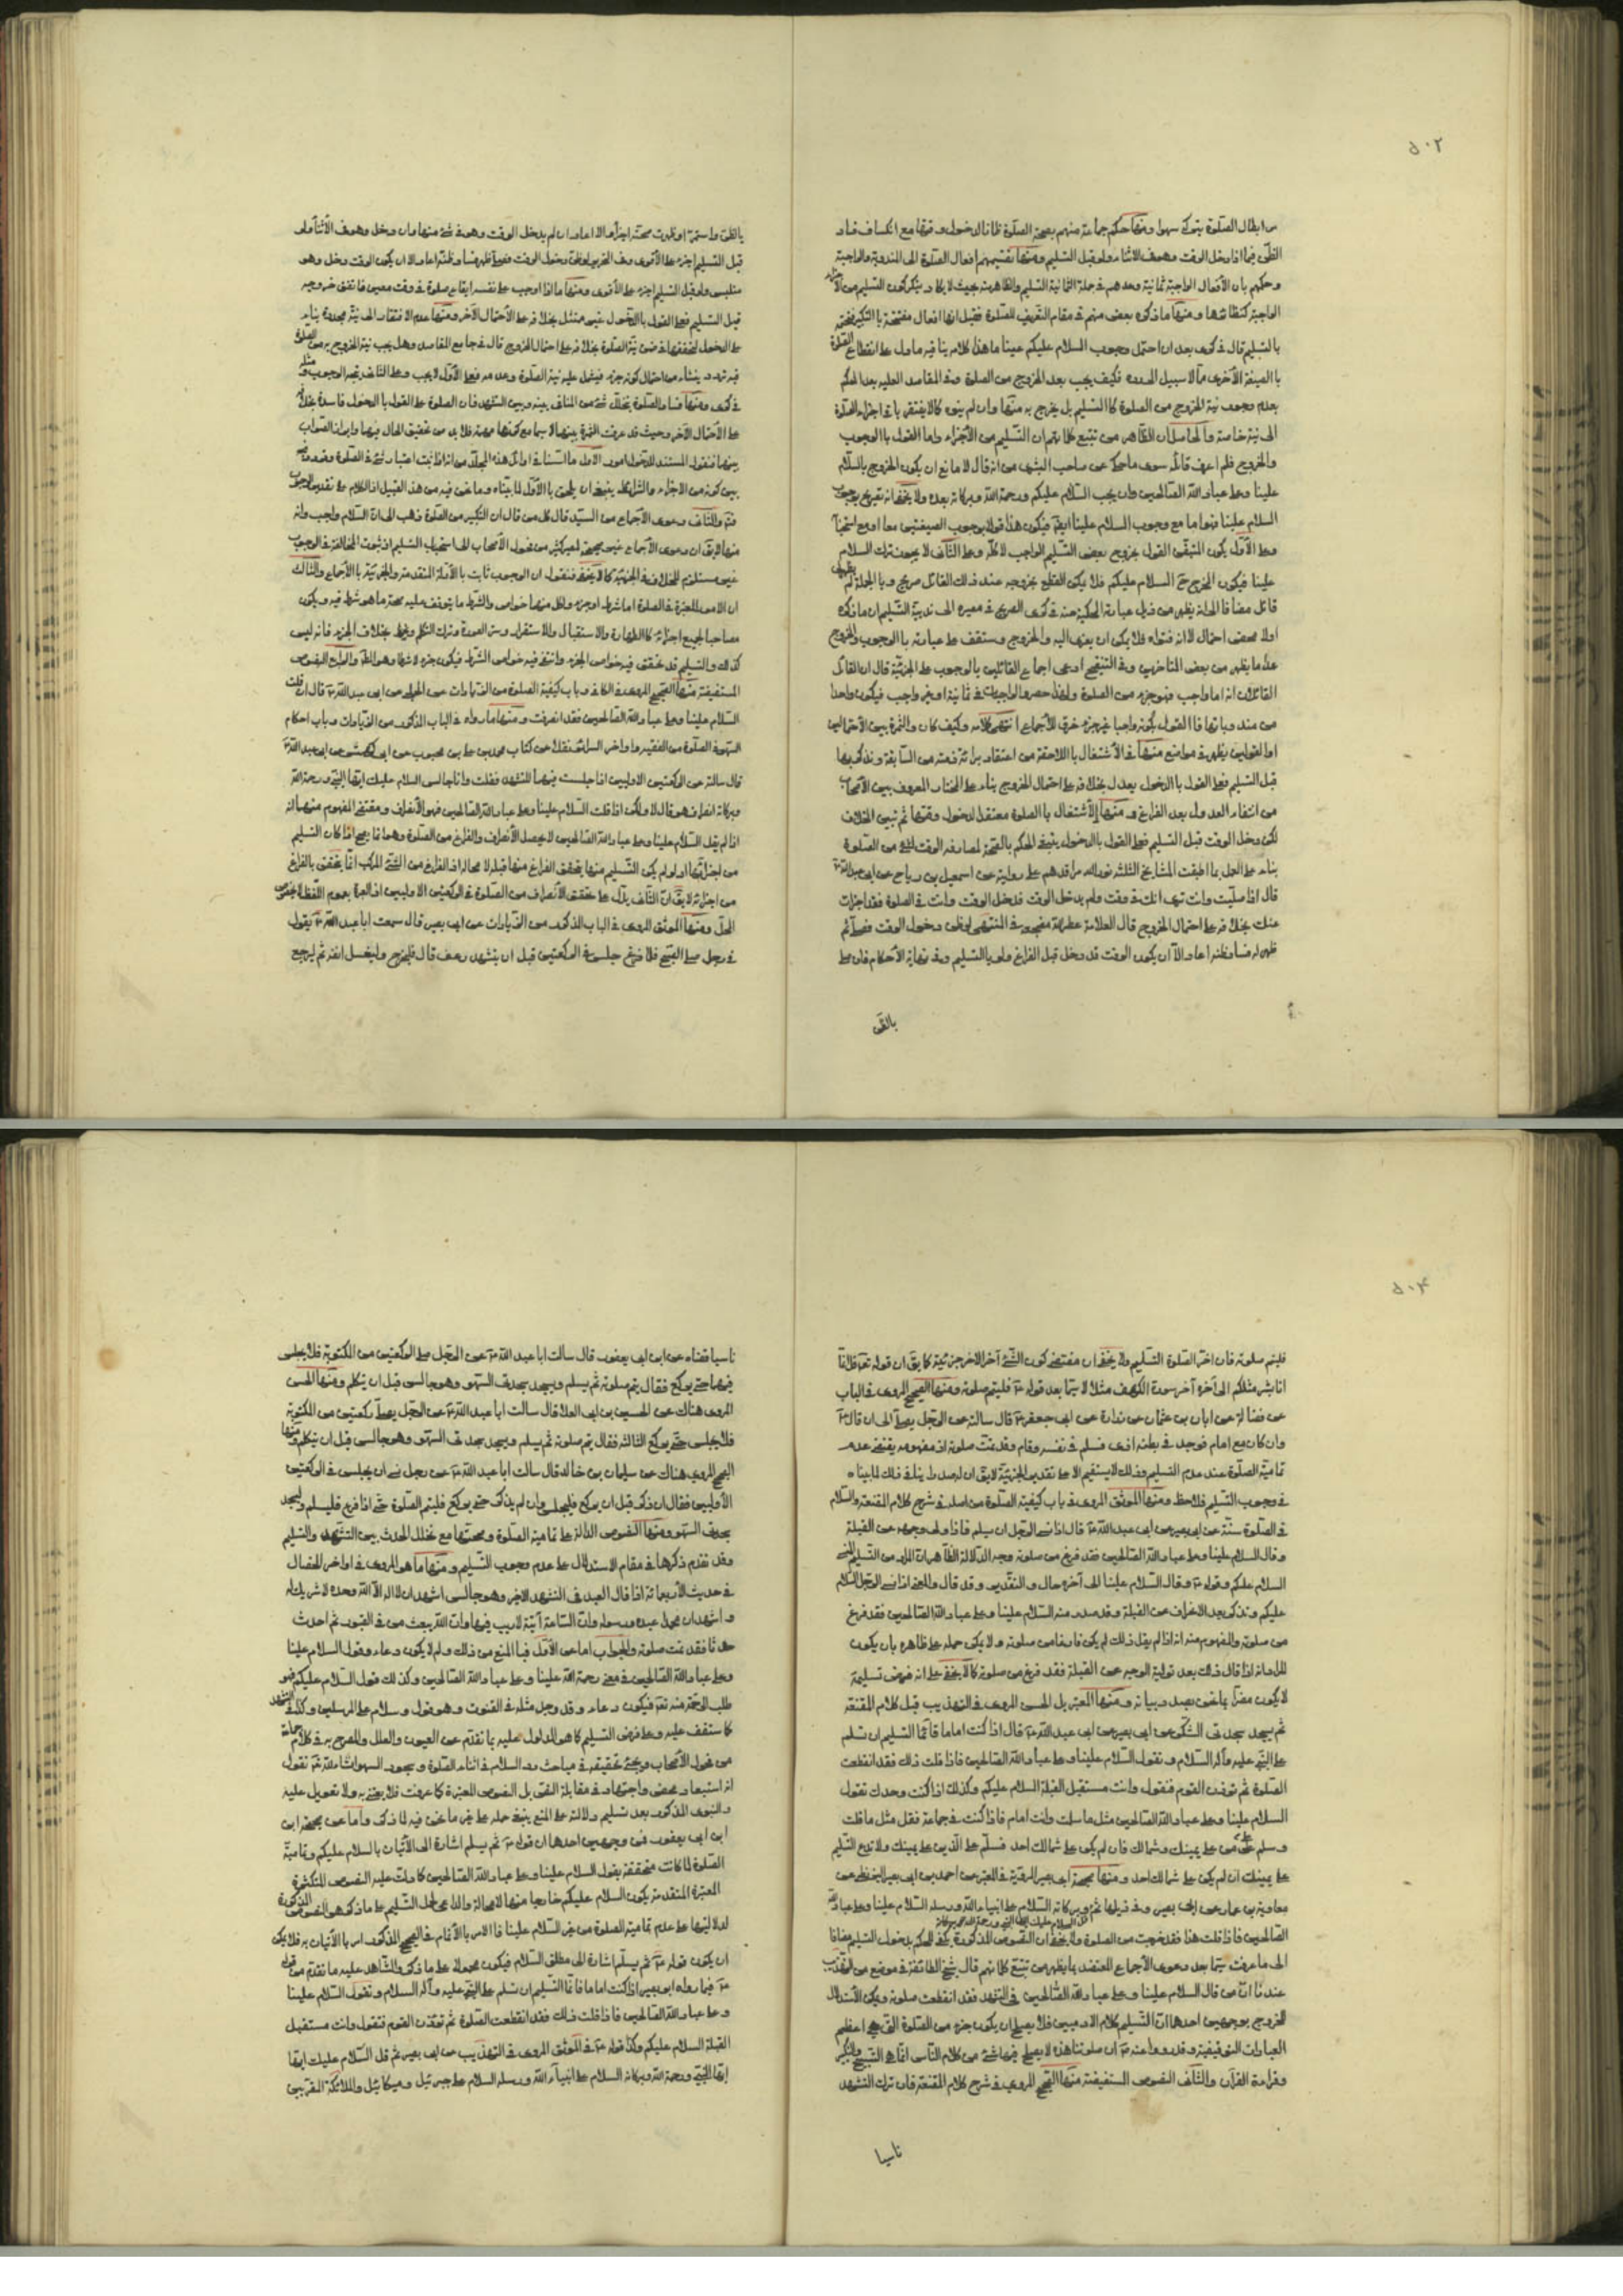 ٥٠٢
من ابطال الصلوة بتركه سهوا ومنها حكم جماعة منهم بصحة الصلوة ظانا لدخول وقتها مع انكشاف فساد
الظن فيما اذا دخل الوقت وهو في الاثناء ولو قبل التسليم ومنها تقسيمهم افعال الصلوة الى المندوبة والواجبة
وحكمهم بان الأفعال الواجبة ثمانية وعدهم في جملة الثمانية التسليم
الواجبة كنظائرها ومنها ما ذكره بعض منهم في مقام التعريف للصلوة فقيل انها افعال مفتتحة بالتكبير مختتمة
بالتسليم قال في كرى بعد ان احتمل وجوب السلام عليكم عينا ما هذا كلامه
با الصيغة الأخرى مما لا سبيل اليه فكيف يجب بعد الخروج من الصلوة
بعدم وجوب نية الخروج من الصلوة كا التسليم بل يخرج به منها وان لم ينوه كالا يفتقر باقي اجزاء الصلوة
الى نية خاصة والحاصل ان الظاهر من تتبع كلماتهم ان التسليم من الأجزاء واما القول با الوجوب
والخروج فلم اعرف قائله سوى ما حكى عن صاحب البشرى من انه قال لا مانع ان يكون الخروج بالسلام
علينا وعلى عباد الله الصالحين وان يجب السلام عليكم ورحمة الله وبركاته بعده ولا يخفى انه
السلام علينا
وعلى الأول يكون المتبقى القول بخروج بعض التسليم الواجب لا كله وعلى الثاني لا يجوز ترك السلام
علينا فيكون المخرج السلام عليكم فلا يكن القطع بخروجه عند ذلك القائل صريح وبا الجملة لم يظهر
قائل مضافا الى انه يظهر من ذيل عبارته المحكية عنه في كرى الصريح في مصيره الى ندبية التسليم ان ما ذكره
اولا محض احتمال لا انه فتواه فلا يمكن ان يعزى اليه والخروج وستقف على عبارته با الوجوب والخروج
عد ما يظهر من بعض المتاخرين وفي التنقيح ادعى اجماع القائلين بالوجوب على الجزئية قال ان القائل
القائلان انه اما واجب فهو جزء من الصلوة
القول بكونه واجبا غير جزء خرق للأجماع انتهى كلامه وكيف كان والثمرة بين الاحتمالين
او القولين يظهر في مواضع منها في الأشتغال با اللاحقة من اعتقاد برائة ذمته من السابقة وتذكر بها
قبل التسليم فعلى القول با الدخول يعدل بخلافه على احتمال الخروج بناء على المختار المعروف بين الأصحاب
من انتفاء العدول بعد الفراغ ومنها الأشتغال با الصلوة معتقدا لدخول وقتها ثم تبين الخلاف
لكن دخل الوقت قبل التسليم فعلى القول بالدخول ينبغي الحكم بالصحة لمصادفة الوقت لشيء من الصلوة
بناء على العمل بما اطبقت المشايخ الثلثة نور الله مراقدهم على روايته عن اسمعيل بن رياح عن ابي عبد الله ع
قال اذا صليت وانت ترى انك في وقت ولم يدخل الوقت فدخل الوقت وانت في الصلوة فقد اجزات
عنك بخلافه على احتمال الخروج قال العلامة في المنتهى لو ظن دخول الوقت فصلى ثم
ظهر له فساد ظنه اعاد الا ان يكون الوقت قد دخل قبل الفراغ ولو بالتسليم وفي نهاية الأحكام فان صلى
بالظن
بالظن واستمر او ظهرت صحته اجزأ والا اعاد ان لم يدخل الوقت وهو في شيء منها وان دخل وهو في الأثناء ولو
قبل التسليم اجزء على الأقوى وفي التحرير لو ظن دخول الوقت فصلى ثم ظهر فساد ظنه اعاد الا ان يكون الوقت دخل وهو
متلبس ولو قبل التسليم اجزء على الأقوى ومنها ما اذا اوجب على نفسه ايقاع صلوة في وقت معين فاتفق خروجه
قبل التسليم فعلى القول بالدخول غير ممتثل بخلافه على الأحتمال الآخر ومنها عدم الافتقار الى نية مجددة بناء
على الدخول لتحققها في ضمن نية الصلوة بخلافه على احتمال الخروج قال في جامع المقاصد وهل يجب نية الخروج به من الصلوة
فيه تردد ينشاء من احتمال كونه جزء فيشمل عليه نية الصلوة وعدمه فعلى الأول لا يجب وعلى الثاني يتجه الوجوب ومثله
في كرى ومنها فساد الصلوة بتخلل شيء من المنافي بينه وبين التشهد فان الصلوة على القول با الدخول فاسدة بخلافه
على الأحتمال الآخر وحيث قد عرفت الثمرة بينهما لا سيما مع كونها مهمة فلا بد من تحقيق الحال فيها وابراز الصواب
بينهما فنقول المستند للدخول امور الأول ما اسسناه في اوائل هذه المجلد من انه اذا ثبت اعتبار شيء في الصلوة
بين كونه من الأجزاء والشرائط ينبغي ان يلحق بالأول لما بيناه وما نحن فيه من هذا القبيل اذ الكلام على تقدير الوجوب
والثاني دعوى الأجماع من السيد قال كل من قال ان التكبير من الصلوة ذهب الى ان السلام واجب وانه
منها لا يق ان دعوى الأجماع غير صحيحة لمصير كثير من فحول الأصحاب الى استحباب التسليم اذ ثبوت المخالفة في الوجوب
غير مستلزم للخلاف في الجزئية كما لا يخفى فنقول ان الوجوب ثابت با الأدلة المتقدمة والجزئية با الأجماع والثالث
ان الأمور المعتبرة في الصلوة اما شرط او جزء ولكل منهما خواص والشرط ما يتوقف عليه صحة ما هو شرط فيه ويكون
مصاحبا لجميع اجزائه كا الطهارة والاستقبال والاستقرار وستر العورة وترك التكلم وغيرها بخلاف الجزء فانه ليس
كذلك والتسليم قد تحقق فيه خواص الجزء وانتفى فيه خواص الشرط فيكون جزء لا شرطا وهو المط والرابع النصوص
المستفيضة منها الصحيح المروي في الكافي وباب كيفية الصلوة من الزيادات عن الحلبي عن ابي عبد الله ع قال ان قلت
السلام علينا وعلى عباد الله الصالحين فقد انصرفت ومنها ما رواه في الباب المذكور من الزيادات وباب احكام
السهو في الصلوة من الفقيه واواخر السرائر نقلا عن كتاب محمد بن علي بن محبوب عن ابي كهمس عن ابي عبد الله ع
قال سالته عن الركعتين الاوليين اذا جلست فيهما للتشهد فقلت وانا جالس السلام عليك ايها النبي ورحمة الله
وبركاته انصراف هو قال لا ولكن اذا قلت السلام علينا وعلى عباد الله الصالحين فهو الأنصراف ومقتضى المفهوم منهما انه
اذا لم يقل السلام علينا وعلى عباد الله الصالحين لا يحصل الأنصراف والفراغ من الصلوة وهو انما يصح اذا كان التسليم
من اجزائها اذ لو لم يكن التسليم منها يتحقق الفراغ منها قبله لا محالة اذ الفراغ من الشيء المركب انما يتحقق بالفراغ
من اجزائه لا يق ان الثاني يدل على تحقق الأنصراف من الصلوة في الركعتين الاوليين اذ العبرة بعموم اللفظ لا بخصوص
المحل ومنها الموثق المروي في الباب المذكور من الزيادات عن ابي بصير قال سمعت ابا عبد الله ع يقول
في رجل صلى الصبح فلما فرغ جلس في الركعتين قبل ان يتشهد رعف قال فليخرج وليغسل انفه ثم ليرجع
٥٠٣
فليتم صلوته فان اخر الصلوة التسليم ولا يخفى ان مقتضى كون الشيء آخر الاخر جزئيته كما يق ان قوله تعالى قل انما
انا بشر مثلكم الى آخره آخر سورة الكهف مثلا لا سيما بعد قوله ع فليتم صلوته ومنها الصحيح المروي في الباب
عن فضالة عن ابان بن عثمان عن زرارة عن ابي جعفر ع قال سالته عن الرجل يصلي الى ان قال ع
وان كان مع امام فوجد في بطنه اذى فسلم في نفسه وقام فقد تمت صلوته اذ مفهومه يقتضي عدم
تمامية الصلوة عند عدم التسليم وذلك لا يستقيم الا على تقدير الجزئية
في وجوب التسليم فلاحظ ومنها الموثق المروي في باب كيفية الصلوة من اصله في شرح كلام المقنعة والسلام
في الصلوة سنة عن ابي بصير عن ابي عبد الله ع قال اذا نسي الرجل ان يسلم فاذا ولى وجهه عن القبلة
وقال السلام علينا وعلى عباد الله الصالحين فقد فرغ من صلوته وجه الدلالة الظاهر ان المراد من التسليم المنسي
السلام عليكم وقوله ع وقال السلام علينا الى آخره حال والتقدير وقد قال والمعنى اذا نسي الرجل السلام
عليكم وتذكر بعد الانحراف عن القبلة وقد صدر منه السلام علينا وعلى عباد الله الصالحين فقد فرغ
من صلوته والمفهوم منه انه اذا لم يقل ذلك لم يكن فارغا من صلوته ولا يمكن حمله على ظاهره بان يكون
المراد انه اذا قال ذلك بعد تولية الوجه عن القبلة فقد فرغ من صلوته كما لا يخفى
لا يكون مضرا بما نحن بصدد بيانه ومنها المعتبر بل الحسن المروي في التهذيب قبل كلام المقنعة
ثم يسجد سجدتي الشكر عن ابي بصير عن ابي عبد الله ع قال اذا كنت اماما فانما التسليم ان تسلم
على النبي عليه وآله السلام وتقول السلام علينا وعلى عباد الله الصالحين فاذا قلت ذلك فقد انقطعت
الصلوة ثم توذن القوم فتقول وانت مستقبل القبلة السلام عليكم وكذلك اذا كنت وحدك تقول
السلام علينا وعلى عباد الله الصالحين مثل ما سلمت وانت امام فاذا كنت في جماعة فقل مثل ما قلت
وسلم على من على يمينك وشمالك فان لم يكن على شمالك احد فسلم على الذين على يمينك ولا تدع التسليم
على يمينك ان لم يكن على شمالك احد ومنها صحيحة ابي بصير المروية في المعتبر عن احمد بن ابي نصر البزنطي عن
معاوية بن عمار عن ابي بصير وفي ذيلها ثم قل السلام عليك ايها النبي ورحمة الله وبركاته السلام على انبياء الله ورسله السلام علينا وعلى عباد الله
الصالحين فاذا قلت هذا فقد خرجت من الصلوة ولا يخفى ان النصوص المذكورة يكفي للحكم بدخول التسليم مضافا
الى ما عرفت سيما بعد دعوى الأجماع المعتضد بما يظهر من تتبع كلماتهم قال شيخ الطائفة في موضع من التهذيب
عندنا ان من قال السلام علينا وعلى عباد الله الصالحين في التشهد فقد انقطعت صلوته ويمكن الأستدلال
للخروج بوجهين احدهما ان التسليم كلام الادميين فلا يصلح ان يكون جزء من الصلوة التي هي اعظم
العبادات التوقيفية وقد ورد عنه ع ان صلوتنا هذه لا يصلح فيها شيء من كلام الناس انما هي التسبيح والتكبير
وقراءة القرآن والثاني النصوص المستفيضة منها الصحيح المروي في شرح كلام المقنعة فان ترك التشهد
ناسيا
ناسيا قضاه عن ابن ابي يعفور قال سالت ابا عبد الله ع عن الرجل صلى الركعتين من المكتوبة فلا يجلس
فيهما حتى يركع فقال يتم صلوته ثم يسلم ويسجد سجدتي السهو وهو جالس قبل ان يتكلم ومنها الحسن
المروي هناك عن الحسين بن ابي العلا قال سالت ابا عبد الله ع عن الرجل يصلي ركعتين من المكتوبة
فلا يجلس حتى يركع الثالثة فقال يتم صلوته ثم يسلم ويسجد سجدتي السهو وهو جالس قبل ان يتكلم ومنها
الصحيح المروي هناك عن سليمان بن خالد قال سالت ابا عبد الله ع عن رجل نسي ان يجلس في الركعتين
الأوليين فقال ان ذكر قبل ان يركع فليجلس وان لم يذكر حتى يركع فليتم الصلوة حتى اذا فرغ فليسلم وليسجد
سجدتي السهو ومنها النصوص الدالة على تمامية الصلوة وصحتها مع تخلل الحدث بين التشهد والتسليم
وقد تقدم ذكرها في مقام الاستدلال على عدم وجوب التسليم ومنها ما هو المروي في اواخر الخصال
في حديث الأربعمائة اذا قال العبد في التشهد الاخير وهو جالس اشهد ان لا اله الا الله وحده لا شريك له
واشهد ان محمدا عبده ورسوله وان الساعة آتية لا ريب فيها وان الله يبعث من في القبور ثم احدث
حدثا فقد تمت صلوته والجواب اما عن الأول فبا المنع من ذلك ولم لا يكون دعاء وقول السلام علينا
وعلى عباد الله الصالحين في معنى رحمة الله علينا وعلى عباد الله الصالحين وكذلك قول السلام عليكم هو
طلب الرحمة منه تعالى فيكون دعاء وقد وجل مثله في القنوت وهو قول وسلام على المرسلين
كما ستقف عليه وعلى فرض التسليم كما هو المدلول عليه بما تقدم عن العيون والعلل والمصرح به في كلام جماعة
من فحول الأصحاب ويجئ تحقيقه في مباحث رد السلام في اثناء الصلوة وسجود السهو انشاء الله تعالى نقول
انه استبعاد محض واجتهاد في مقابلة النص بل النصوص المعتبرة كما عرفت فلا يعتنى به ولا تعويل عليه
والنبوي المذكور بعد تسليم دلالته على المنع ينبغي حمله على غير ما نحن فيه لما ذكر واما عن صحيحة ابن
ابي يعفور فمن وجهين احدهما ان قوله ع ثم يسلم اشارة الى الأتيان بالسلام عليكم وتمامية
الصلوة لما كانت متحققة بقول السلام علينا وعلى عباد الله الصالحين كما دلت عليه النصوص المتكثرة
المعتبرة المتقدمة يكون السلام عليكم خارجا منها لا محالة والداعي لحمل التسليم على ما ذكر هو النصوص المذكورة
لدلالتها على عدم تمامية الصلوة من غير السلام علينا فا الامر با الأتمام في الصحيح المذكور امر با الأتيان به فلا يمكن
ان يكون قوله ع ثم يسلم اشارة الى مطلق السلام فيكون محمولا على ما ذكر والشاهد عليه ما تقدم من قوله
ع فيما رواه ابو بصير اذا كنت اماما فانما التسليم ان تسلم على النبي عليه وآله السلام وتقول السلام علينا
وعلى عباد الله الصالحين فاذا قلت ذلك فقد انقطعت الصلوة ثم توذن القوم فتقول وانت مستقبل
القبلة السلام عليكم وكذا قوله ع في الموثق المروي في التهذيب عن ابي بصير ثم قل السلام عليك ايها
ايها النبي ورحمة الله وبركاته السلام على انبياء الله ورسله السلام على جبرئيل وميكائيل والملائكة المقربين